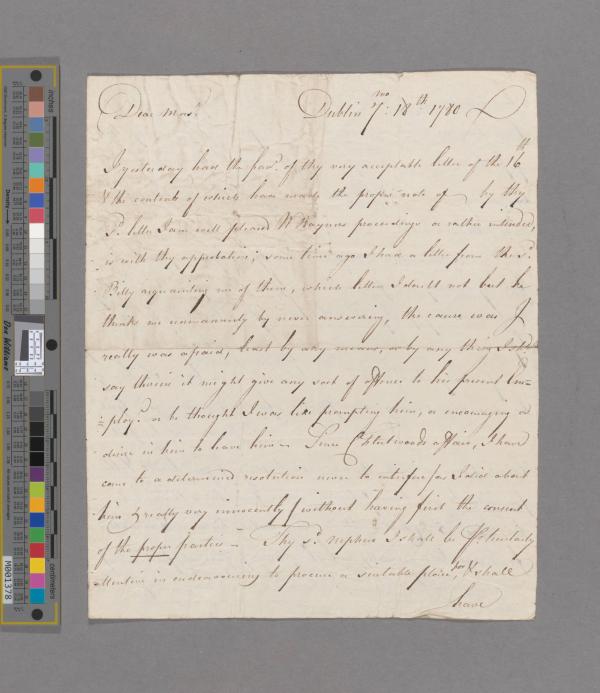 Dear Mar:
Dublin 7: mo 18th 1780
I yesterday had the favr. of thy very acceptable letter of the 16th
& the contents of which have made the proper note of — by thy
Sd. letter I am well pleased W Haynes proceedings or rather intended,
is with thy approbation; some time ago I had a letter from the Sd.
Billy acquainting me of them, which letter I doubt not but he
thinks me unmannerly by never answering, the cause was I
really was afraid, least by any means, or by any thing I shd.
say therein it might give any sort of offence to his present Em=
=ployr. or he thought I was like prompting him, or encouraging a
desire in him to leave him — Since Chetwoods affair, I have
came to a determined resolution never to interfere (as I did about
him & really very innocently) without having first the consent
of the proper parties — Thy Sd. nephew I shall be particularly
attentive in endeavouring to procure a suitable place, for & shall
have
inches
centimetres
Density
Don Williams
M001378